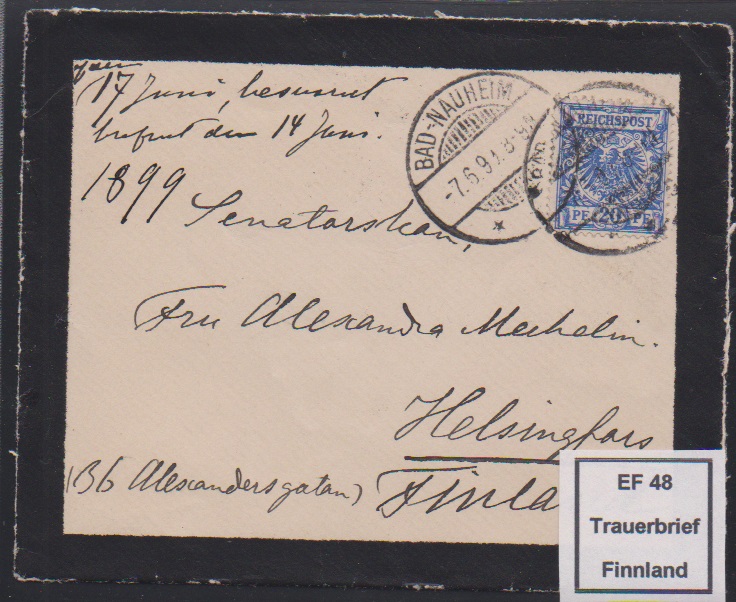 17 Juni, besvarat
brefvet den 14 Juni.
1899
Senatorskan,
Fru Alexandra Mechelin.
Helsingfors
Finla
(36 Alexandersgatan)
BAD-NAUHEIM
-7.6.9
8-9
REICHSPOST
PF 20 PF
EF 48
Trauerbrief
Finnland